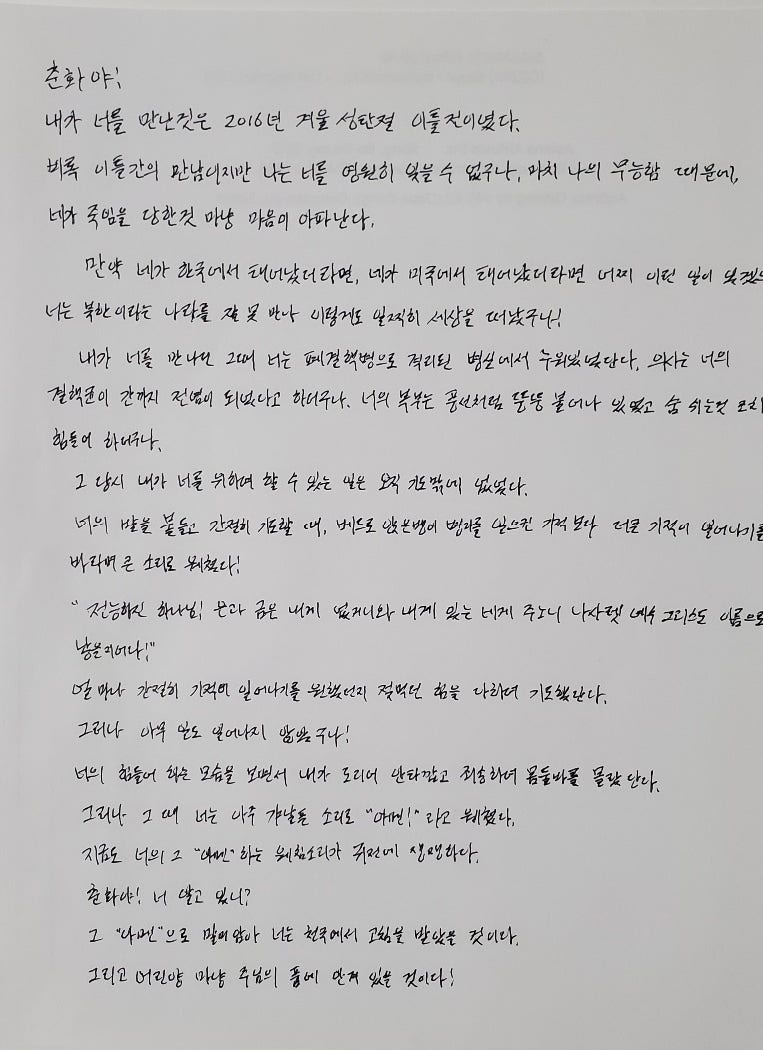 춘화야!
내가 너를 만난것은 2016년 겨울 성탄절 이틀전이였다.
비록 이틀간의 만남이지만 나는 너를 영원히 잊을 수 없구나, 마치 나의 무능함 때문에,
네가 죽임을 당한것 마냥 마음이 아파난다.
만약 네가 한국에서 태어났더라면, 네가 미국에서 태어났더라면 어찌 이런 일이 있겠
너는 북한이라는 나라를 잘 못 만나 이렇게도 일찍히 세상을 떠났구나!
내가 너를 만나던 그때 너는 페결핵병으로 격리된 병실에서 누워있었단다. 의사는 너의
결핵균이 간까지 전염이 되었다고 하더구나. 너의 복부는 풍선처럼 뚱뚱 불어나 있었고 숨 쉬는것 조차
힘들어 하더구나.
그 당시 내가 너를 위하여 할 수 있는 일은 오직 기도밖에 없었다.
너의 발을 붙들고 간절히 기도할 때, 베드로 앉은뱅이 일으킨 기적 보다 더큰 기적이 일어나기를
바라며 큰 소리로 웨쳤다!
"전능하신 하나님! 은과 금은 내게 없거니와 내게 있는 네게 주노니 나사렛 예수 그리스도 이름으로
낳을지어다!"
얼마나 간절히 기적이 일어나기를 원했던지 젖먹던 힘을 다하여 기도했단다.
그러나 아무 일도 일어나지 않았구나!
너의 힘들어 하는 모습을 보면서 내가 도리어 안타깝고 죄송하여 몸둘바를 몰랐단다.
그러나 그 때 너는 아주 갸날픈 소리로 "아멘!" 라고 웨쳤다.
지금도 너의 그 "아멘" 하는 웨침소리가 귀전에 생생하다.
춘화야! 너 알고 있니?
그 "아멘"으로 말미암아 너는 천국에서 고침을 받았을 것이다.
그리고 어린양 마냥 주님의 품에 안겨 있을 것이다!